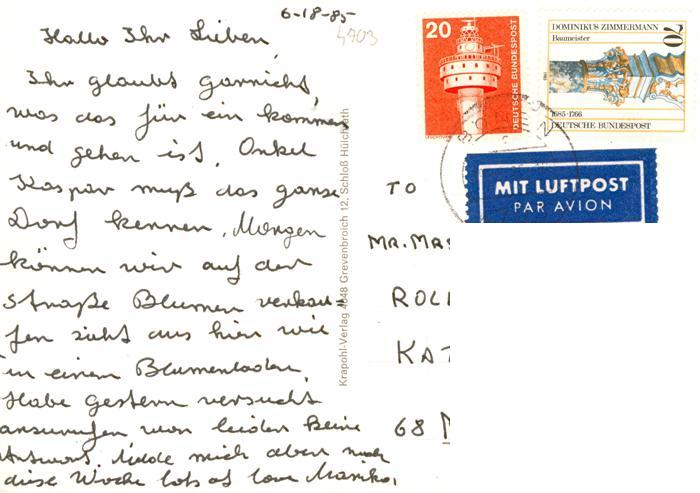 6-18-85
4703
Hallo Ihr Lieben,
Ihr glaubt garnicht,
was das für ein kommen
und gehen ist. Onkel
Kaspar muß das ganze
Dorf kennen. Morgen
können wir auf der
Straße Blumen verkau-
fen sieht aus hier wie
in einem Blumenladen.
Habe gestern versucht
anzurufen war leider keine
Antwort. Melde mich aber noch
diese Woche lots of love Marika.
Krapohl-Verlag 4048 Grevenbroich 12, Schloß Hülchrath
20
DEUTSCHE BUNDESPOST
LEUCHTTURM
DOMINIKUS ZIMMERMANN
Baumeister
70
1685-1766
DEUTSCHE BUNDESPOST
MIT LUFTPOST
PAR AVION
TO
MR. MRS
ROL
KAT
68